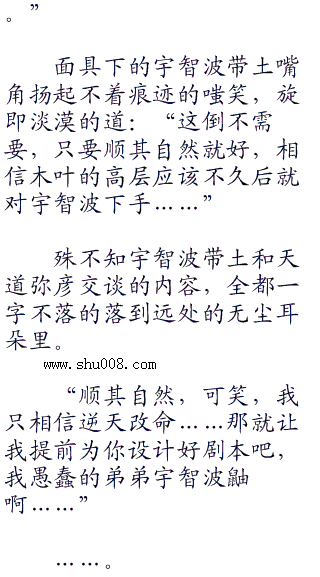 。”
面具下的宇智波带土嘴
角扬起不着痕迹的嗤笑，旋
即淡漠的道：“这倒不需
要，只要顺其自然就好，相
信木叶的高层应该不久后就
对宇智波下手……”
殊不知宇智波带土和天
道弥彦交谈的内容，全都一
字不落的落到远处的无尘耳
朵里。
www.shu008.com
“顺其自然，可笑，我
只相信逆天改命……那就让
我提前为你设计好剧本吧，
我愚蠢的弟弟宇智波鼬
啊……”
……。